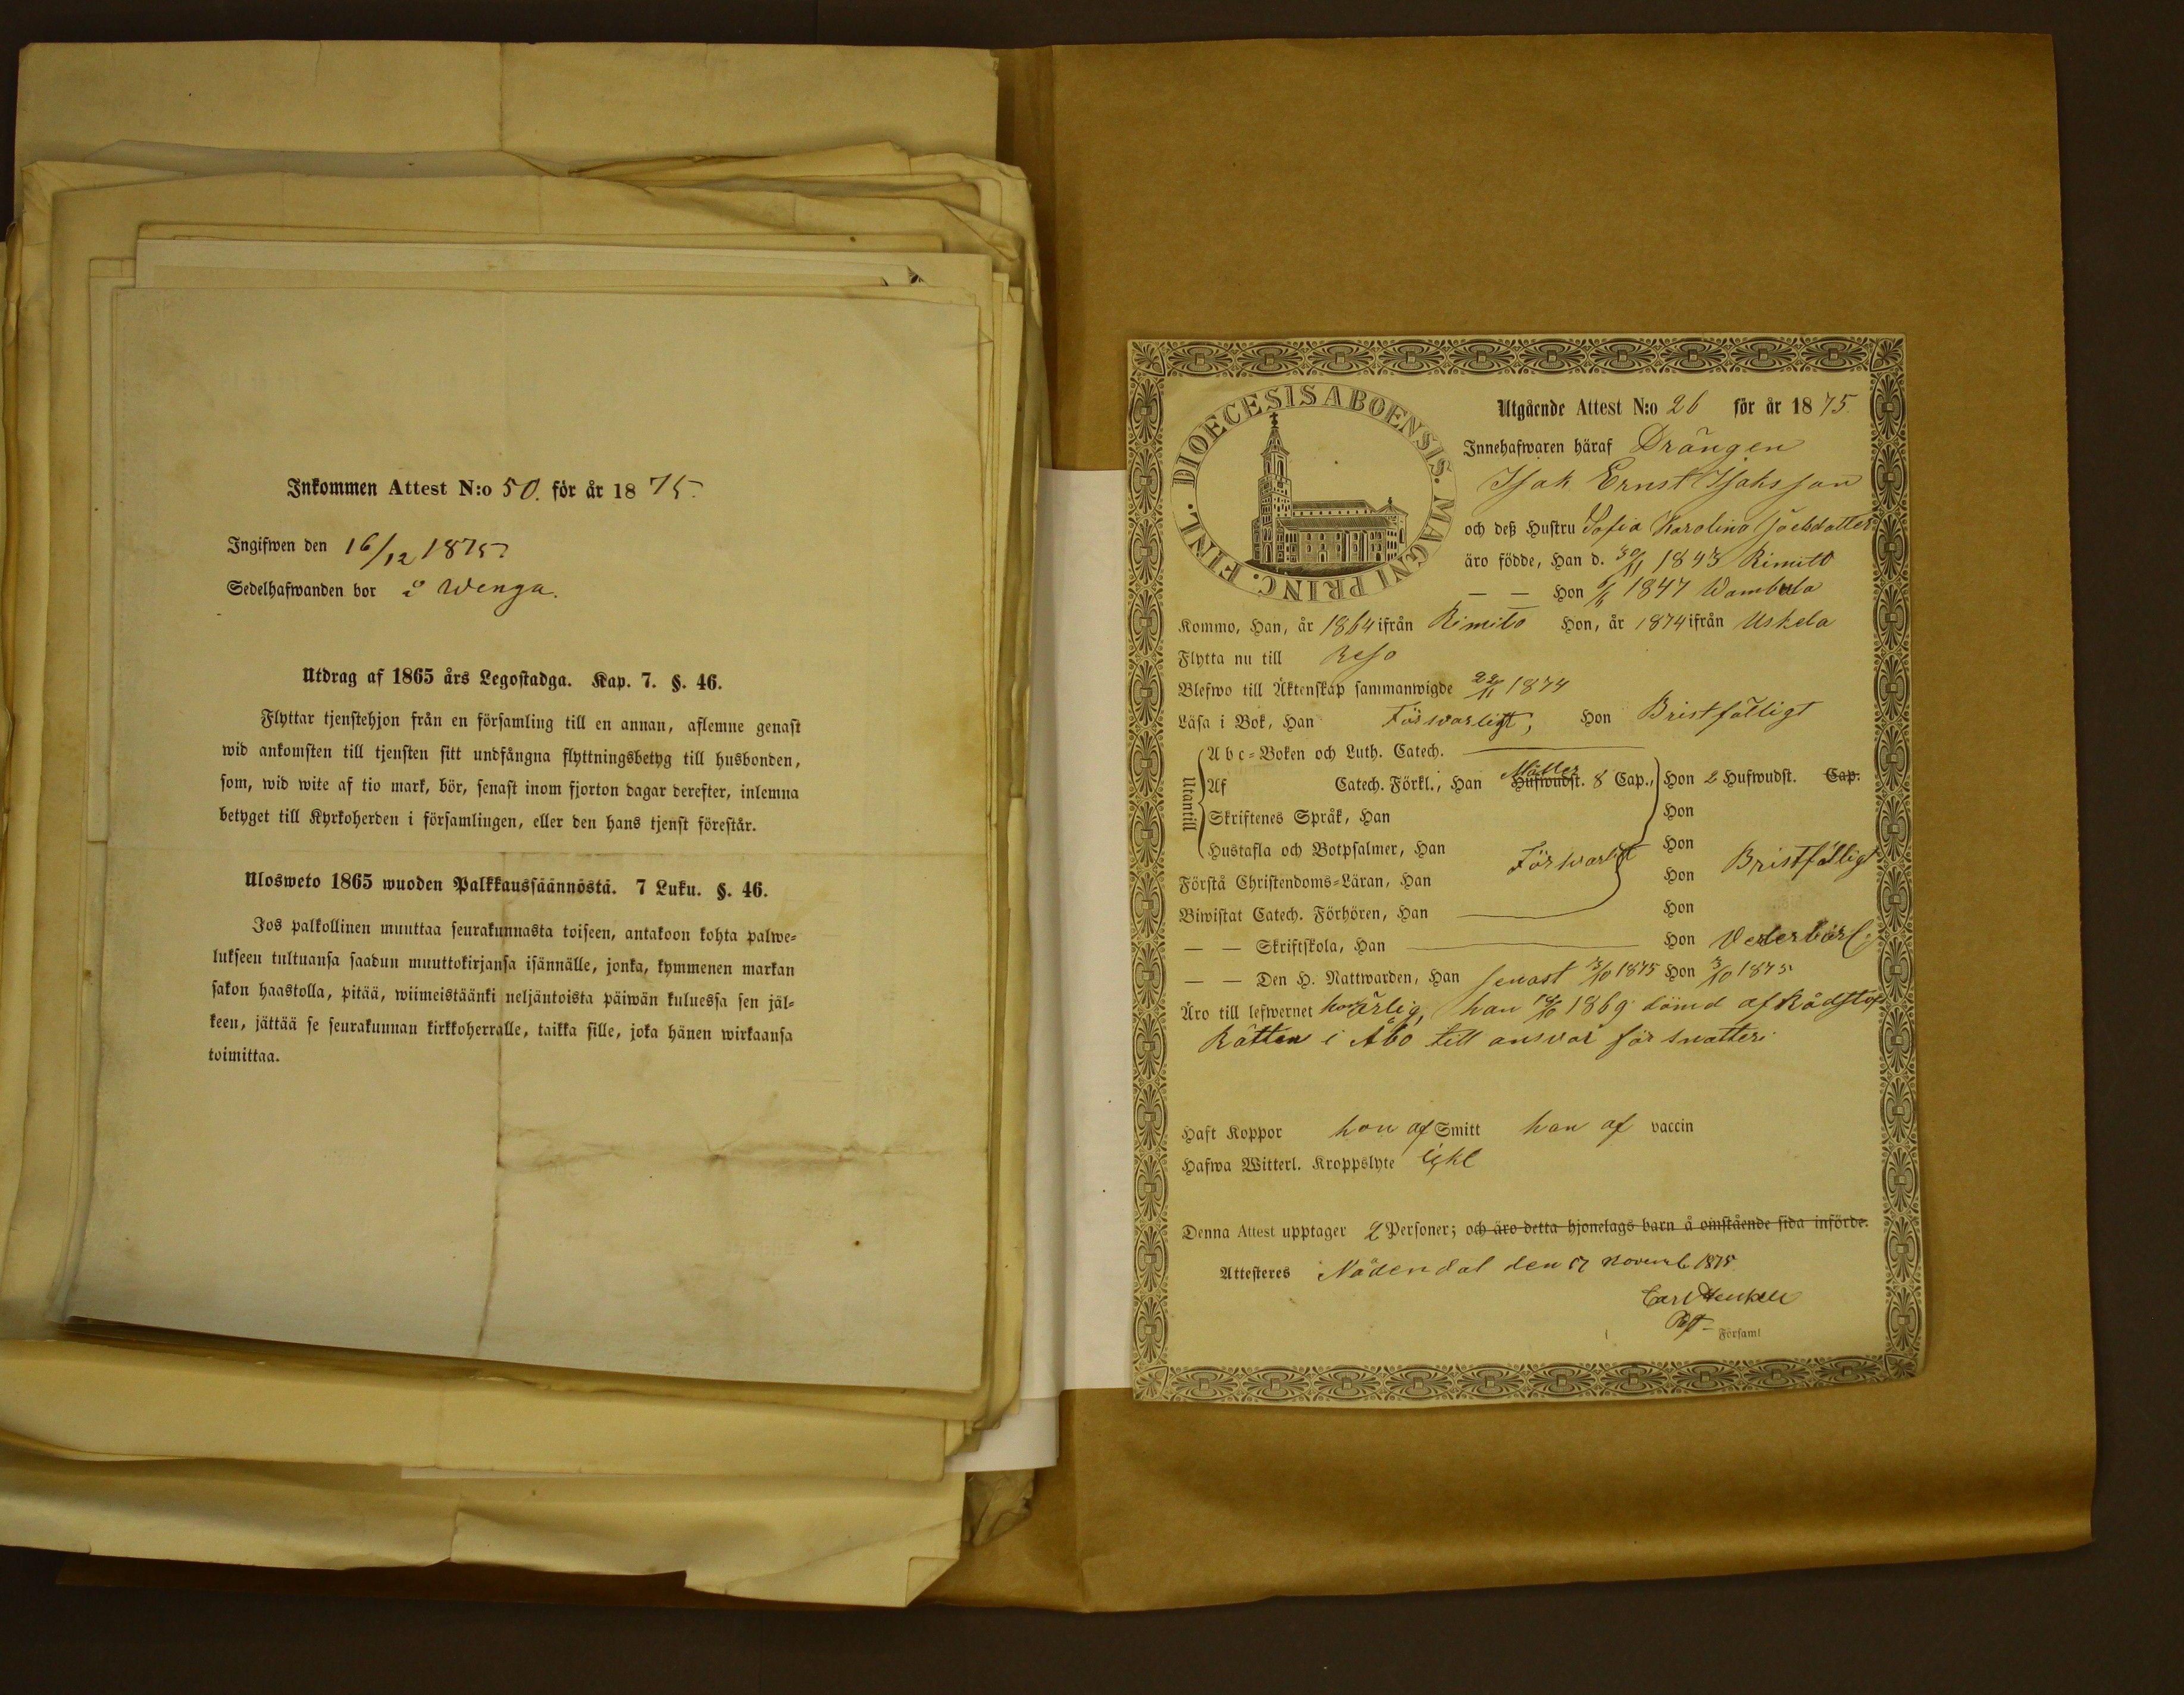 Inkommen Attest N:o 50. för år 1875.
Ingifwen den 16/12 1875.
Sedelhafwanden bor å Wenga.
Utdrag af 1865 års Legostadga. Kap. 7. §. 46.
Flyttar tjenstehjon från en församling till en annan, aflemne genast
wid ankomsten till tjensten sitt undfångna flyttningsbetyg till husbonden,
som, wid wite af tio mark, bör, senast inom fjorton dagar derefter, inlemna
betyget till Kyrkoherden i församlingen, eller den hans tjenst förestår.
Ulosweto 1865 wuoden Palkkaussäännöstä. 7 Luku. §. 46.
Jos palkollinen muuttaa seurakunnasta toiseen, antakoon kohta palwe-
lukseen tultuansa saadun muuttokirjansa isännälle, jonka, kymmenen markan
sakon haastolla, pitää, wiimeistäänki neljäntoista päiwän kuluessa sen jäl-
keen, jättää se seurakunnan kirkkoherralle, taikka sille, joka hänen wirkaansa
toimittaa.
DIOECESIS ABOENSIS. MAGNI PRINC. FINL.
Utgående Attest N:o 26 för år 1875.
Innehafwaren häraf Drängen
Isak Ernst Isaksson
och deß Hustru Sofia Karolina Joelsdotter
äro födde, Han d. 30/11 1843 Rimito
— — Hon 6/6 1847 Wambula
Kommo, Han, år 1864 ifrån Rimito Hon, år 1874 ifrån Uskela
Flytta nu till Reso
Blefwo till Äktenskap sammanwigde 22/11 1874
Läsa i Bok, Han Förswarligt, Hon Bristfälligt
Utantill
Abc-Boken och Luth. Catech.
Af Catech. Förkl., Han Möller Hufwudst. 8 Cap., Hon 2 Hufwudst. Cap.
Skriftenes Språk, Han Hon
Hustafla och Botpsalmer, Han Förswarligt Hon
Förstå Christendoms-Läran, Han Hon Bristfälligt
Biwistat Catech. Förhören, Han Hon
— — Skriftskola, Han Hon Vederbörl.
— — Den H. Nattwarden, Han senast 3/10 1875 Hon 3/10 1875
Äro till lefwernet hon ärlig, han 1869 dömd af Rådstufv
Rätten i Åbo till answar för snatteri
Haft Koppor hon af Smitt han af vaccin
Hafwa Witterl. Kroppslyte
Denna Attest upptager 2 Personer; och äro detta hjonelags barn å omstående sida införde.
Attesteres Nådendal den 17 Novemb. 1875
Carl
Församl